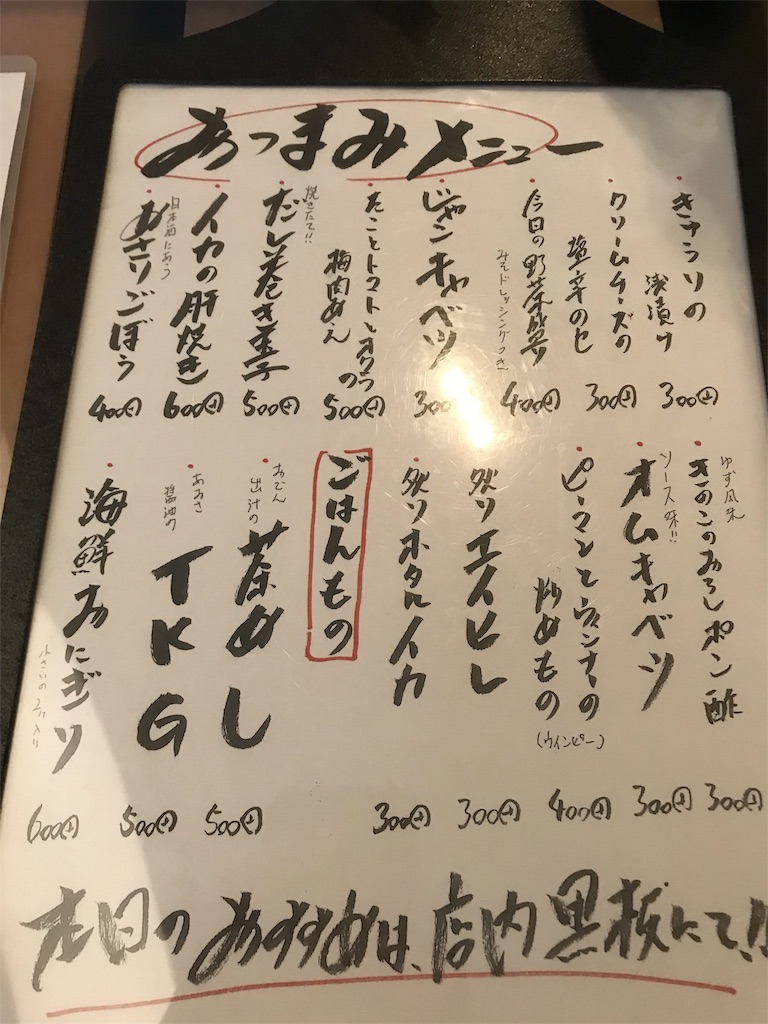 おつまみメニュー
・きゅうりの
浅漬け
300円
・クリームチーズの
塩辛のせ
300円
・今日の野菜盛り
みそドレッシングつき
400円
・じゃンキャベツ
300
・たことトマトとオクラの
梅肉あえ
500円
焼きたて!!
・だし巻き玉子
500円
・イカの肝焼き
日本酒にあう
600円
・あさりごぼう
400円
ゆず風味
・きのこのおろしポン酢
300円
ソース味!!
・オムキャベツ
300円
・ピーマンとウィンナーの
炒めもの
(ウインピー)
400円
・炙りエイヒレ
300円
・炙りホタルイカ
300円
ごはんもの
・おでん
出汁の
茶めし
500円
・あおさ
醤油の
TKG
500円
・海鮮おにぎり
小さいの2コ入り
600円
本日のおすすめは、店内黒板にて!!